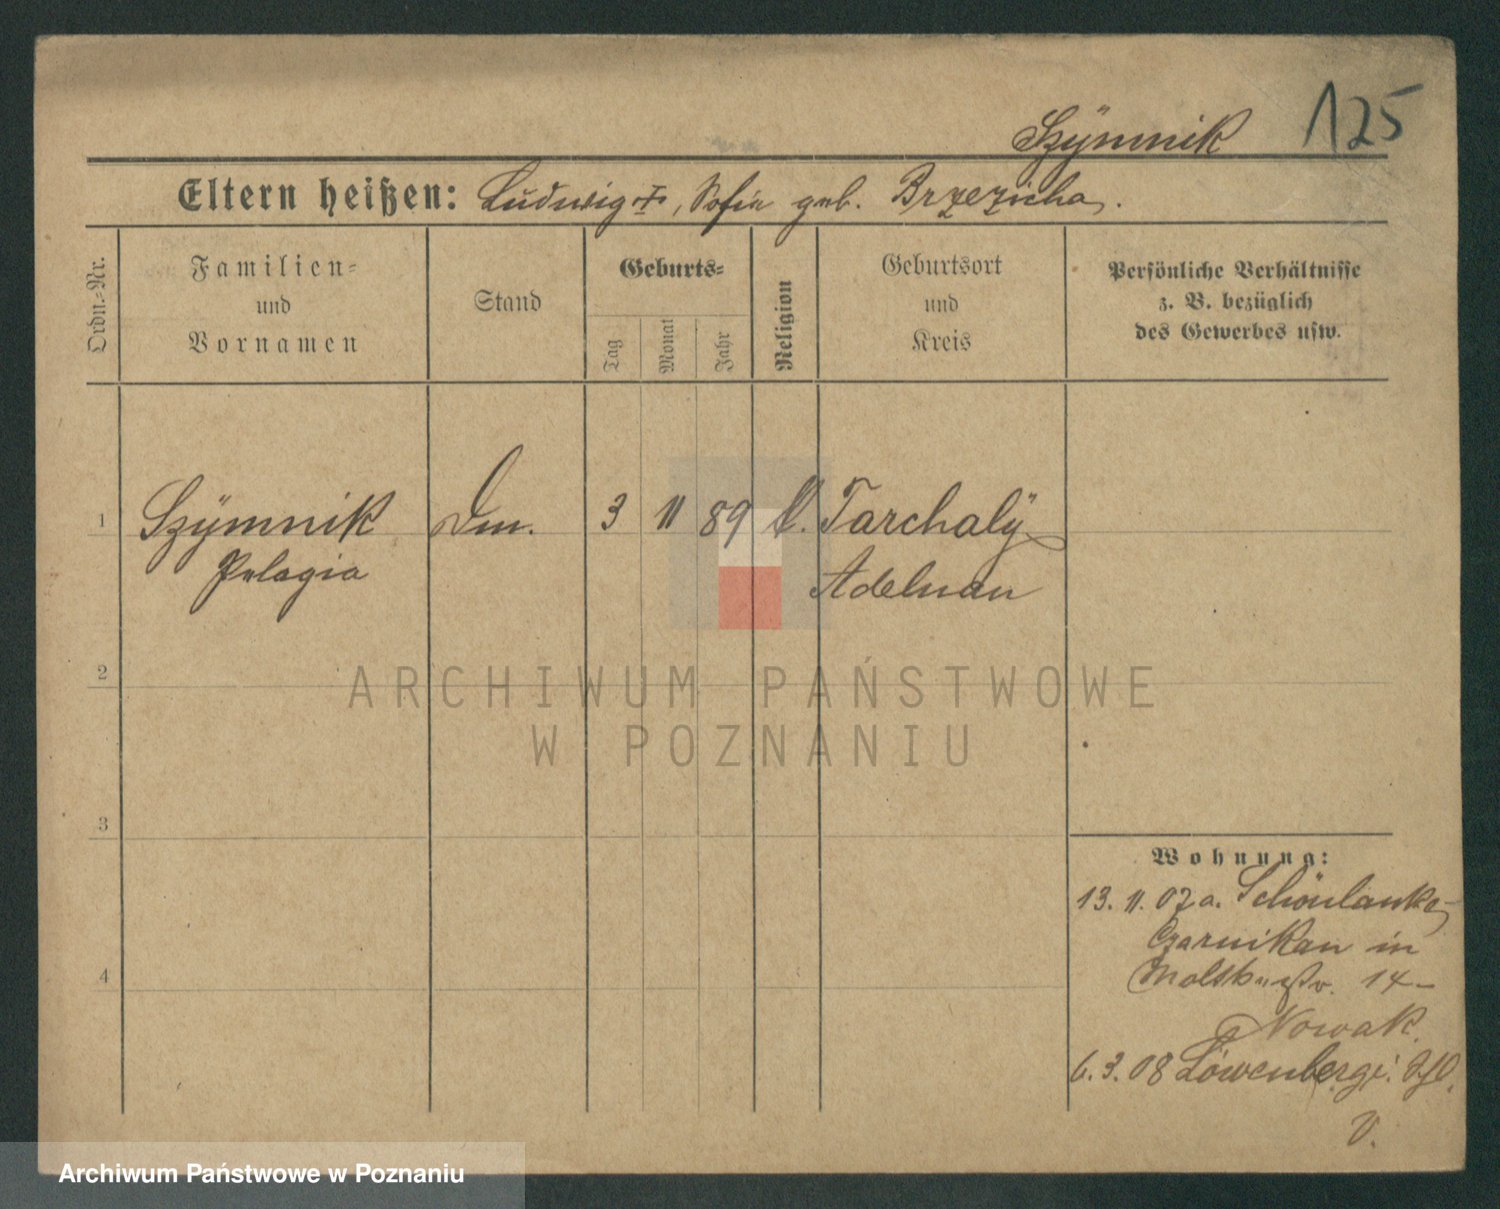 Szÿmnik 125
Eltern heißen: Ludwig †, Sofia geb. Brzezicha.
Ordn.-Nr.
Familien-
und
Vornamen
Stand
Geburts-
Tag
Monat
Jahr
Religion
Geburtsort
und
Kreis
Persönliche Verhältnisse
z. B. bezüglich
des Gewerbes usw.
1 Szÿmnik 3 11 89 Tarchalÿ
Pelagia Adelnau
2
ARCHIWUM PAŃSTWOWE
W POZNANIU
3
Wohnung:
13. 11. 07 a. Schönlanke
Czarnikau in
14
4
Nowak
6. 3. 08 Löwenberg i.
V.
Archiwum Państwowe w Poznaniu